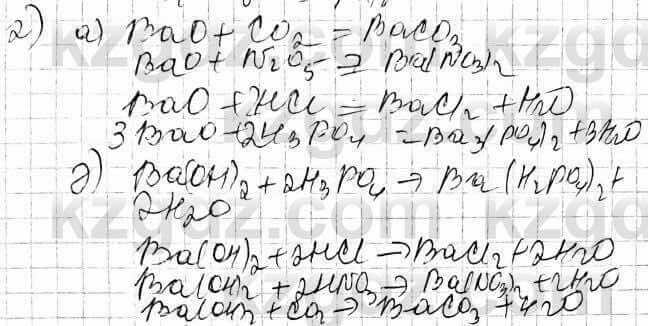 2) a) BaO + CO₂ = BaCO₃
BaO + N₂O₅ = Ba(NO₃)₂
BaO + 2HCl = BaCl₂ + H₂O
3 BaO + 2H₃PO₄ = Ba₃(PO₄)₂ + 3H₂O
д) Ba(OH)₂ + 2H₃PO₄ → Ba(H₂PO₄)₂ +
2H₂O
Ba(OH)₂ + 2HCl → BaCl₂ + 2H₂O
Ba(OH)₂ + 2HNO₃ → Ba(NO₃)₂ + 2H₂O
Ba(OH)₂ + CO₂ → BaCO₃ + H₂O